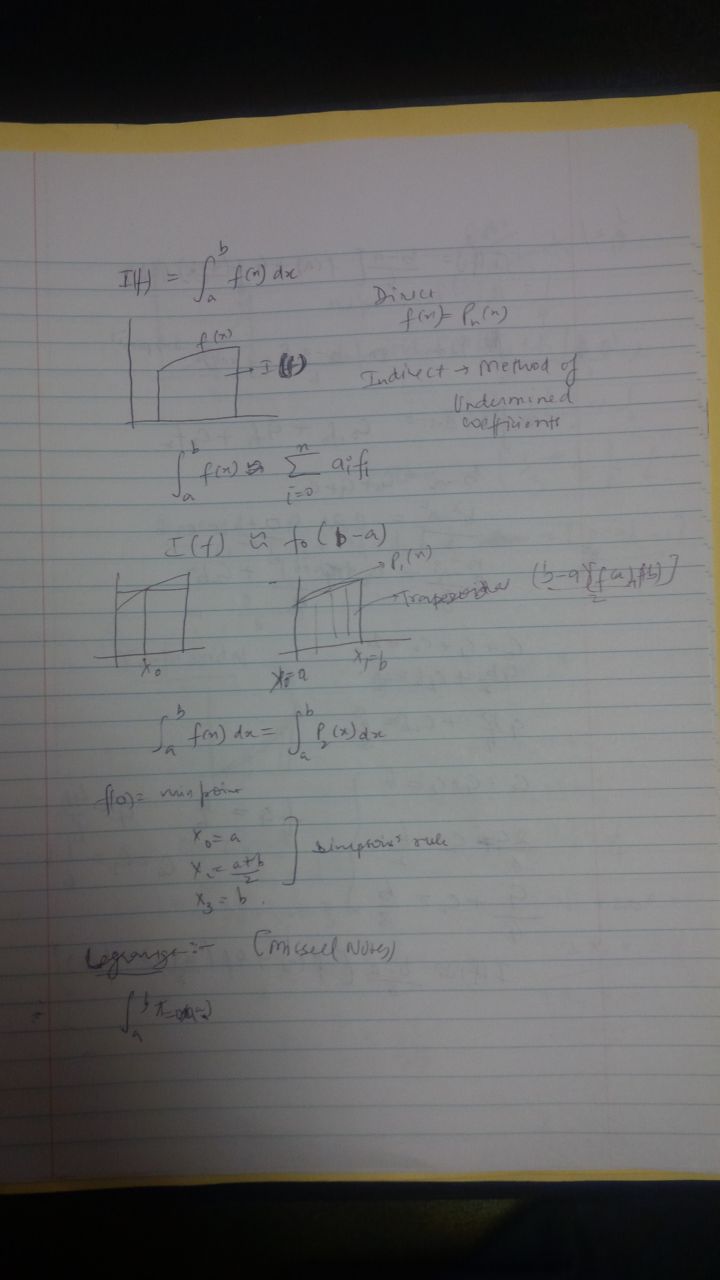 I(f) = ∫_a^b f(x) dx
Direct
f(x) = Pn(x)
f(x)
→ I(f)
Indirect → Method of
Undermined
coefficients
∫_a^b f(x) ≈ Σ_{i=0}^n aᵢfᵢ
I(f) ≈ f₀(b-a)
P₁(x)
x₀
x₀=a
x₁=b
∫_a^b f(x) dx = ∫_a^b P₂(x) dx
x₀ = a
= (a+b)/2
x₃ = b
Simpsons' rule
Legrange :- (Missed Notes)
∫_a^b